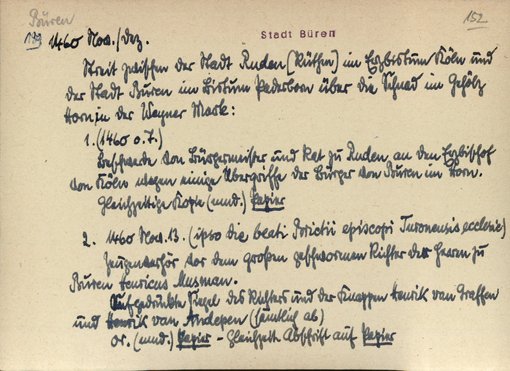 Büren
152
Stadt Büren
179 1460 Nov./Dez.
Streit zwischen der Stadt Ruden (Rüthen) im Erzbistum Köln und
der Stadt Buren im Bistum Paderborn über die Schnad im Gehölz
Horn in der Weyner Mark:
1. (1460 o.T.)
Beschwerde von Bürgermeister und Rat zu Ruden an den Erzbischof
von Köln wegen einige Übergriffe der Bürger von Buren im Horn.
Gleichzeitige Kopie (mnd.) Papier
2. 1460 Nov. 13. (ipso die beati Brictii episcopi Turonensis ecclesie)
Zeugenverhör vor dem großen geschworenen Richter der Herren zu
Buren Henricus Musman.
Aufgedrückte Siegel des Richters und der Knappen Henrik van Graffen
und Henrik van Andepen (sämtlich ab)
Or. (mnd.) Papier - Gleichzeit. Abschrift auf Papier